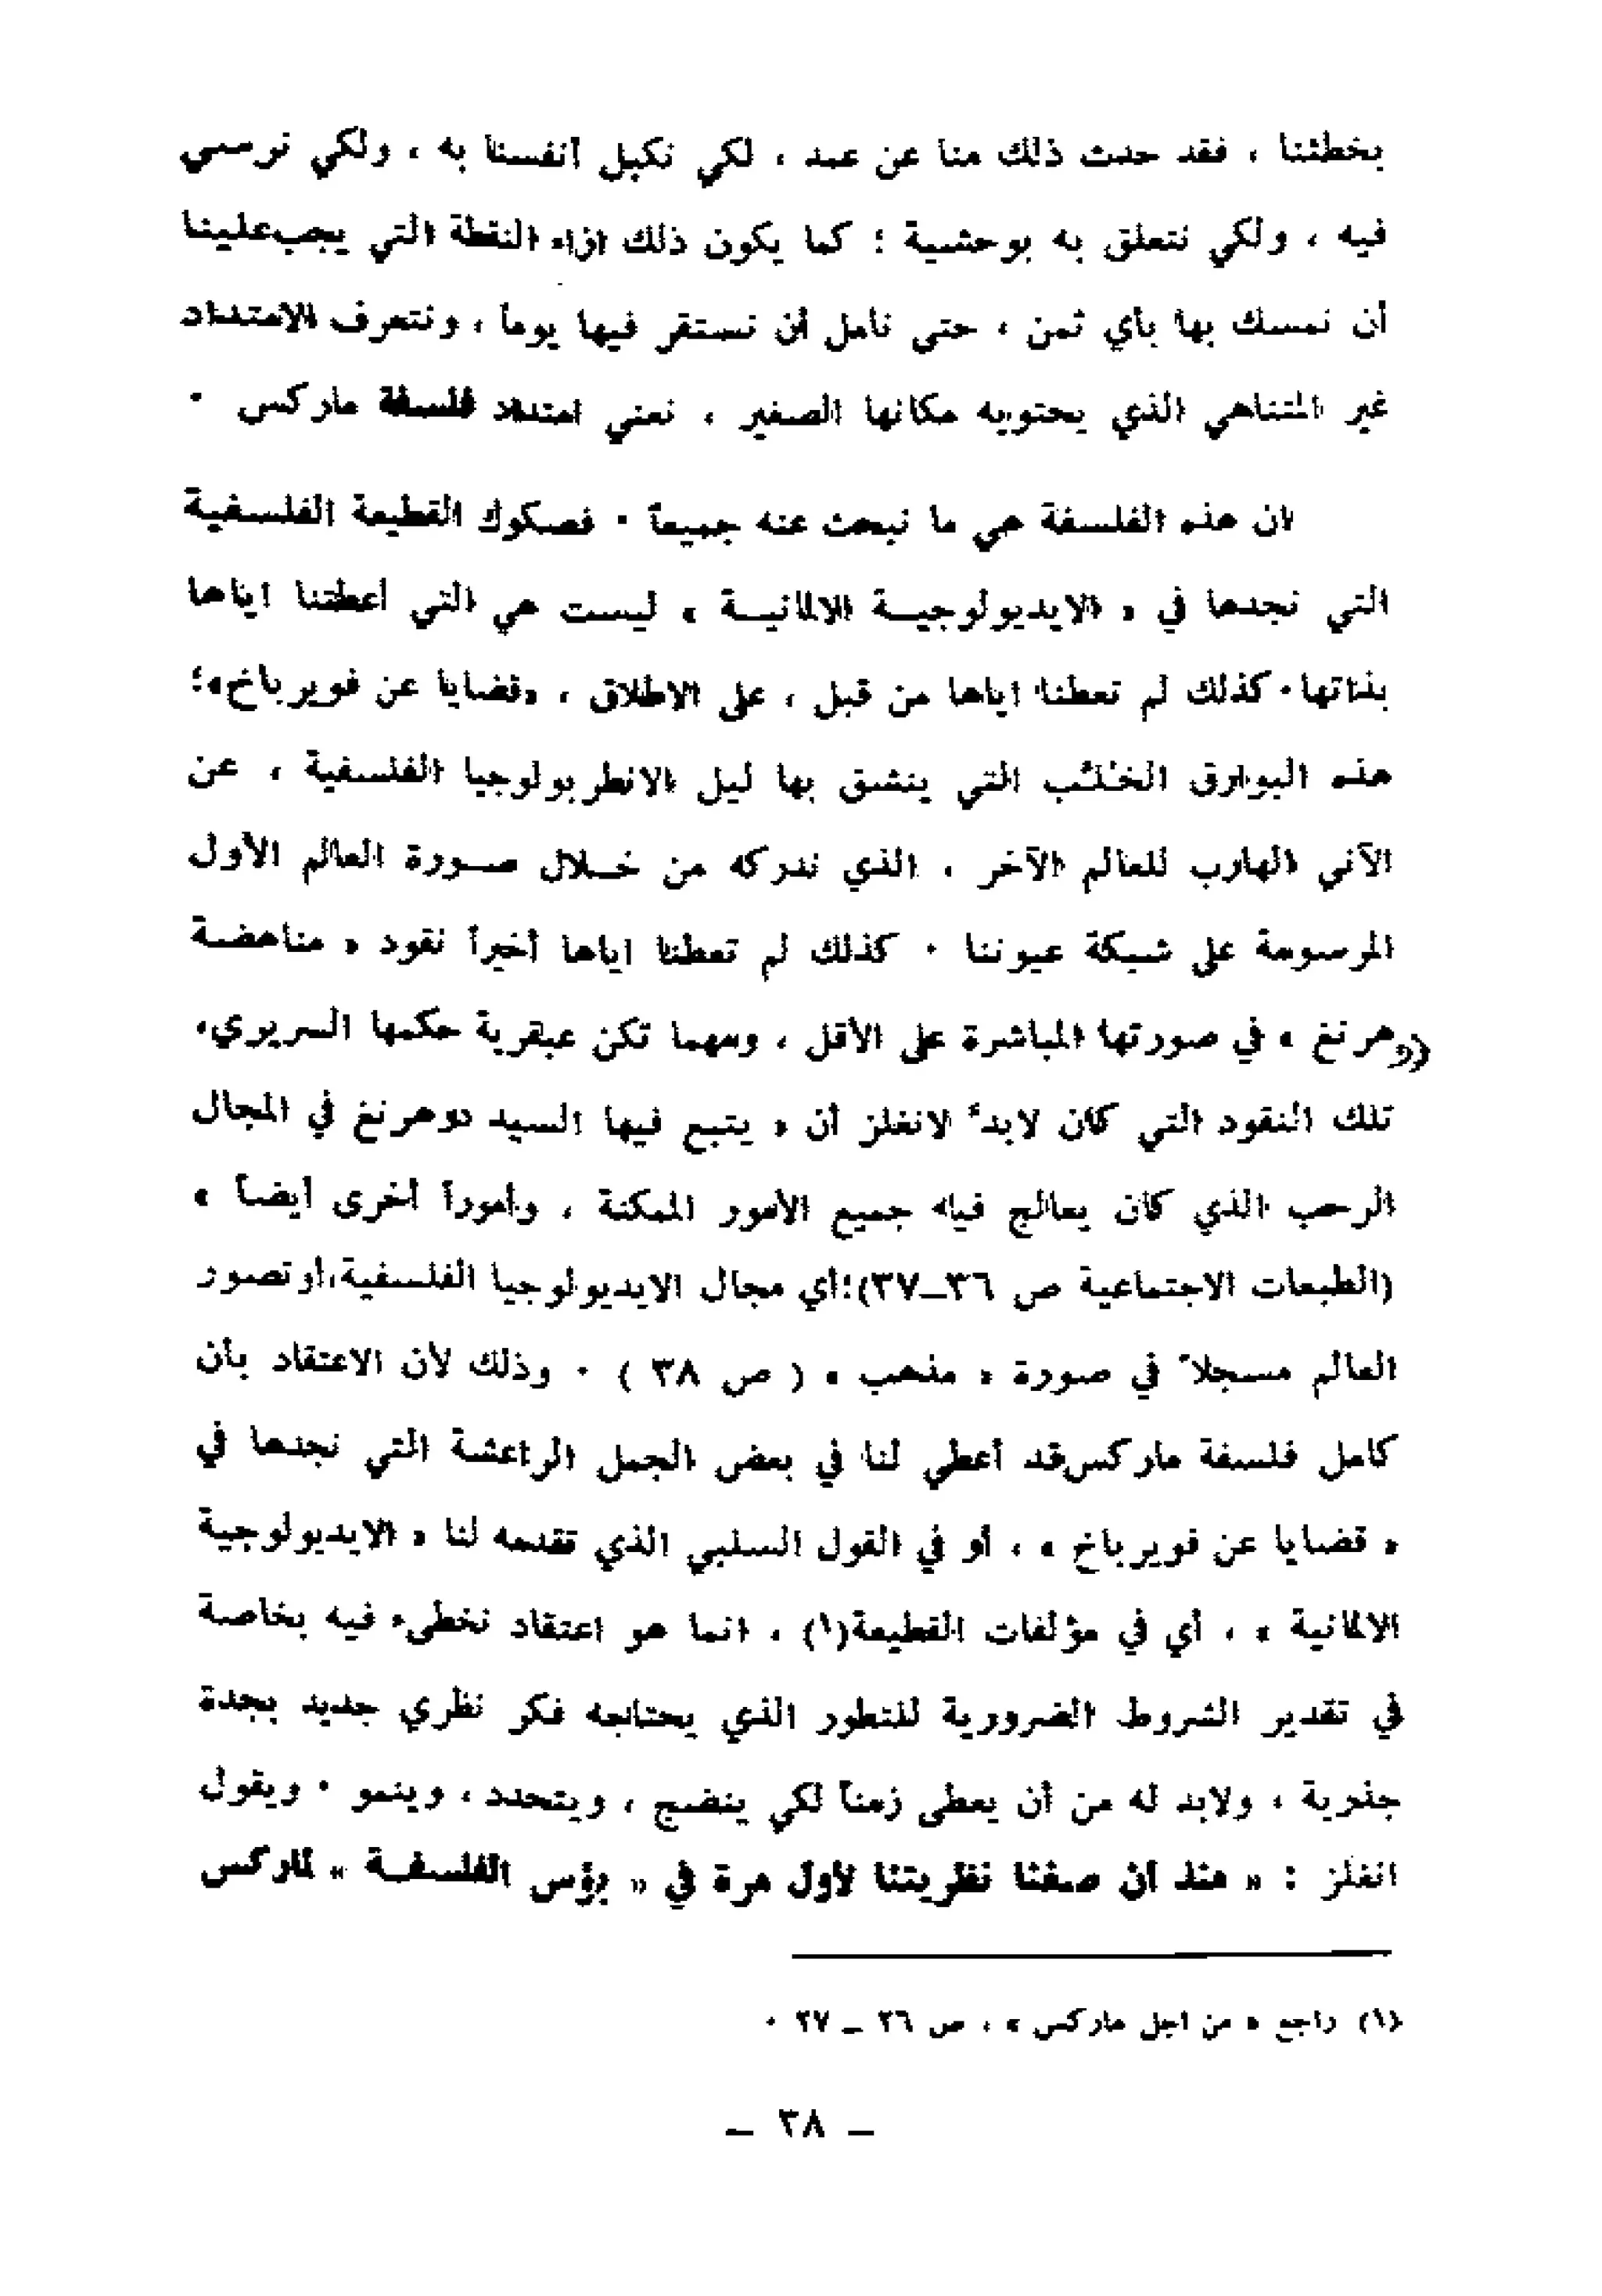 بخطئنا ، فقد حدث ذلك منا عن عمد ، لكي نكبل أنفسنا به ، ولكي نرسي
فيه ، ولكي نتعلق به بوحشية ؛ كما يكون ذلك ازاء النقطة التي يجب علينا
أن نمسك بها بأي ثمن ، حتى نامل أن نستقر فيها يوما ، ونتعرف الامتداد
غير المتناهي الذي يحتويه مكانها الصغير ، نعني امتداد فلسفة ماركس ٠
لان هذه الفلسفة هي ما نبحث عنه جميعاً ٠ فصكوك القطيعة الفلسفية
التي نجدها في « الايديولوجية الالمانية » ليست هي التي أعطتنا اياها
بذاتها ٠ كذلك لم تعطنا اياها من قبل ، على الاطلاق ، «قضايا عن فويرباخ»؛
هذه البوارق الخُلَّب التي ينشق بها ليل الانطربولوجيا الفلسفية ، عن
الآني الهارب للعالم الآخر ، الذي ندركه من خلال صورة العالم الأول
المرسومة على شبكة عيوننا ٠ كذلك لم تعطنا اياها أخيراً نقود « مناهضة
دوهرنغ » في صورتها المباشرة على الأقل ، ومهما تكن عبقرية حكمها السريري،
تلك النقود التي كان لابدّ لانغلز أن « يتبع فيها السيد دوهرنغ في المجال
الرحب الذي كان يعالج فيه جميع الامور الممكنة ، وأموراً أخرى أيضاً »
(الطبعات الاجتماعية ص ٣٦_٣٧)؛أي مجال الايديولوجيا الفلسفية،أو تصور
العالم مسجلاً في صورة « مذهب » ( ص ٣٨ ) ٠ وذلك لأن الاعتقاد بأن
كامل فلسفة ماركس قد أعطي لنا في بعض الجمل الراعشة التي نجدها في
« قضايا عن فويرباخ » ، أو في القول السلبي الذي تقدمه لنا « الايديولوجية
الالمانية » ، أي في مؤلفات القطيعة(١) ، انما هو اعتقاد نخطىء فيه بخاصة
في تقدير الشروط الضرورية للتطور الذي يحتاجه فكر نظري جديد بجدة
جذرية ، ولابد له من أن يعطى زمناً لكي ينضج ، ويتحدد ، وينمو ٠ ويقول
انغلز : « منذ ان صغنا نظريتنا لأول مرة في « بؤس الفلسفة » لماركس
(١) راجع « من اجل ماركس » ، ص ٢٦ _ ٢٧ ٠
_ ٣٨ _